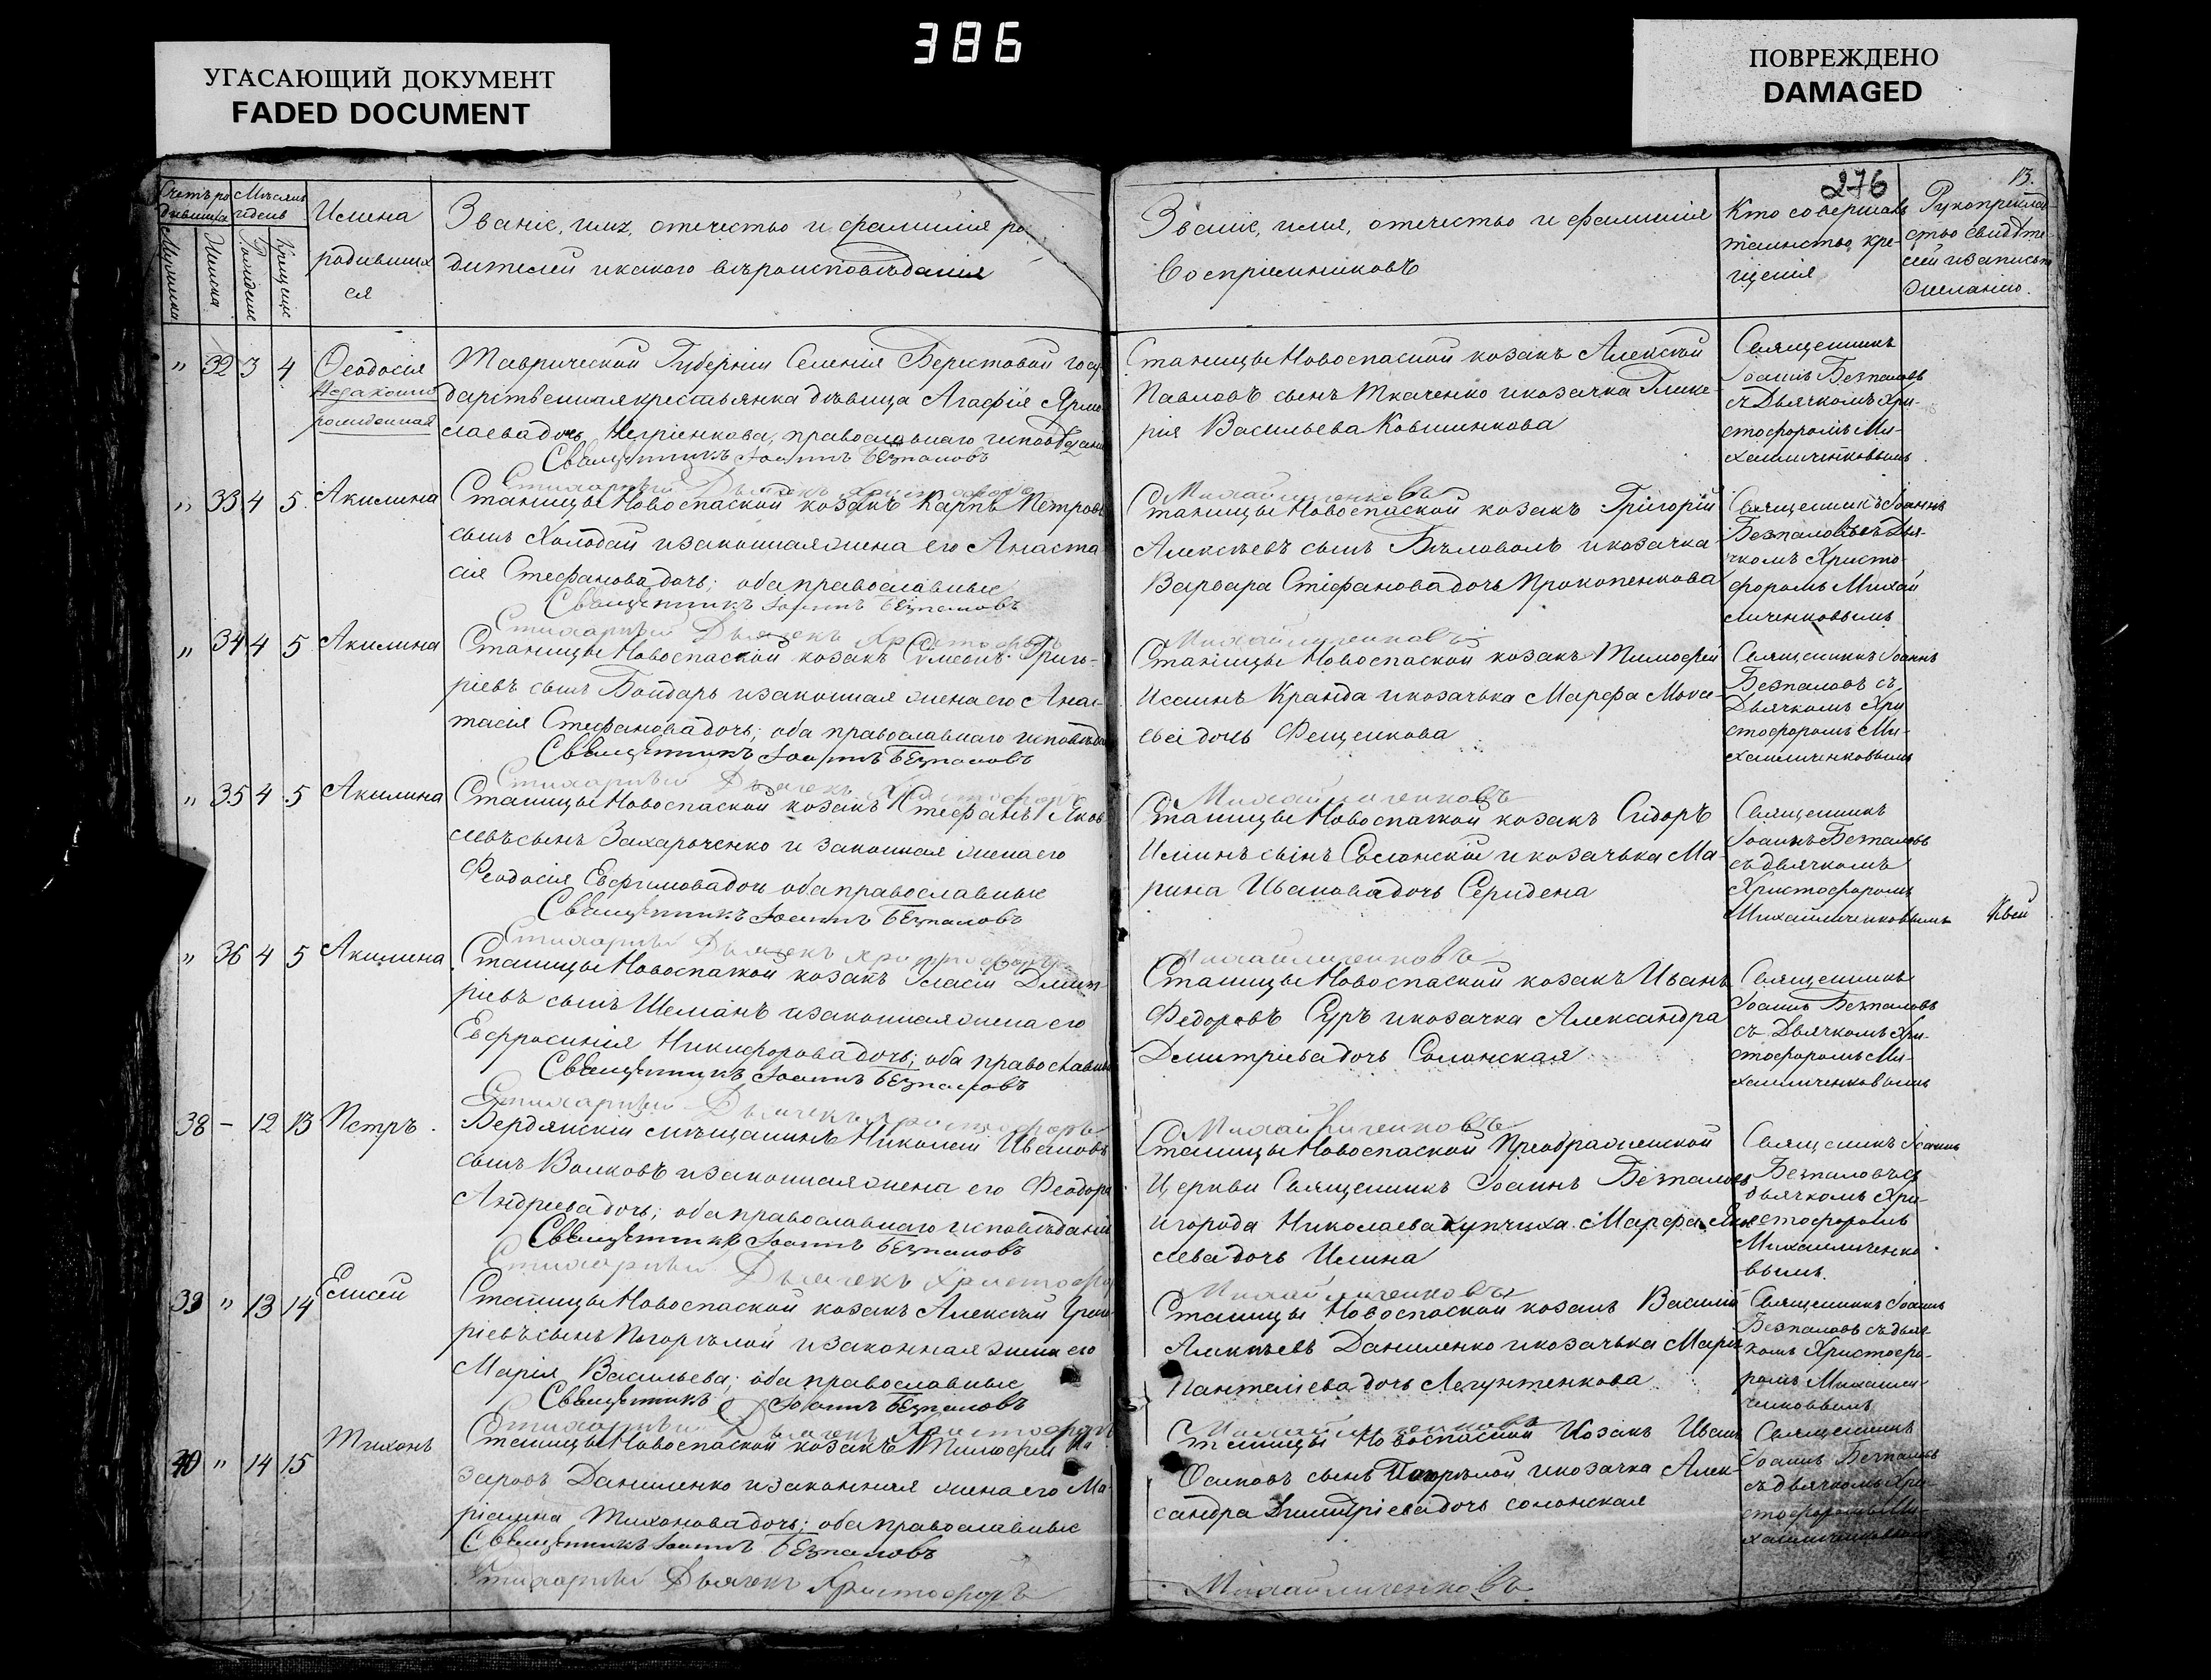 386
УГАСАЮЩИЙ ДОКУМЕНТ
FADED DOCUMENT
ПОВРЕЖДЕНО
DAMAGED
276
13.
Счетъ ро
дившихся
Мѣсяцъ
и день
Мужеска
Женска
Рожденіе
Крещеніе
Имена
родивших
ся
Званіе, имя, отечество и фамилія ро
дителей и какого вѣроисповѣданія
Званіе, имя, отечество и фамилія
Воспріемниковъ
Кто совершалъ
таинство кре-
щенія
Рукоприклад
ство свидѣте
лей о записѣ по
желанію.
" 32 3 4 Ѳеодосія
Незаконно
рожденная
Таврической Губерніи Селенія Берестовой госу
дарственная крестьянка дѣвица Агафія Ярмо
лаева дочь Негріенкова, православнаго исповѣданія
Священникъ Іоаннъ Безпаловъ
Стихарный Дьячекъ Христофоръ
Станицы Новоспаской козакъ Алексѣй
Павловъ сынъ Ткаченко и козачка Глике-
рія Васильева Ковшинкова
Михайличенковъ
Священникъ
Іоаннъ Безпаловъ
съ Дьячкомъ Хри-
стофоромъ Ми-
хайличенковымъ
" 33 4 5 Акилина
Станицы Новоспаской козакъ Карпъ Петровъ
сынъ Холодай и законная жена его Анаста
сія Стефанова дочь; оба православные
Священникъ Іоаннъ Безпаловъ
Стихарный Дьячекъ Христофоръ
Станицы Новоспаской козакъ Григорій
Алексѣевъ сынъ Бѣловолъ и козачка
Варвара Стефанова дочь Прокопенкова
Михайличенковъ
Священникъ Іоаннъ
Безпаловъ съ Дья-
чкомъ Христо-
форомъ Михай
личенковымъ
" 34 4 5 Акилина
Станицы Новоспаской козакъ Симеонъ Григо-
ріевъ сынъ Бондарь и законная жена его Анас-
тасія Стефанова дочь; оба православнаго исповѣда
Священникъ Іоаннъ Безпаловъ
Стихарный Дьячекъ Христофоръ
Станицы Новоспаской козакъ Тимофей
Исаинъ Кранда и козачька Марфа Моисе-
ева дочь Фещенкова
Михайличенковъ
Священникъ Іоаннъ
Безпаловъ съ
Дьячкомъ Хри
стофоромъ Ми-
хайличенковымъ
" 35 4 5 Акилина
Станицы Новоспаской козакъ Стефанъ Яков
левъ сынъ Захароченко и законная жена его
Феодосія Евфимова доч оба православные
Священникъ Іоаннъ Безпаловъ
Стихарный Дьячекъ Христофоръ
Станицы Новоспаской козакъ Сидоръ
сынъ Солонскій и козачька Ма-
рина Иванова дочь Середена
Михайличенковъ
Священникъ
Іоаннъ Безпаловъ
съ дьячкомъ
Христофоромъ
Михайличенковымъ
" 36 4 5 Акилина
Станицы Новоспаской козакъ Власій Дмит-
ріевъ сынъ Шеманъ и законная жена его
Евфросинія Никифорова дочь; оба православные
Священникъ Іоаннъ Безпаловъ
Стихарный Дьячекъ Христофоръ
Станицы Новоспаской козакъ Иванъ
Федоровъ Суръ и козачка Александра
Дмитріева дочь Солонская
Михайличенковъ
Священникъ
Іоаннъ Безпаловъ
съ Дьячкомъ Хри-
стофоромъ Ми-
хайличенковымъ
38 – 12 13 Петръ.
Бердянскій мѣщанинъ Николай Ивановъ
сынъ Волковъ и законная жена его Феодора
Андреева дочь; оба православнаго исповѣданія
Священникъ Іоаннъ Безпаловъ
Стихарный Дьячекъ Христофоръ
Станицы Новоспаской Преображенской
Церкви Священникъ Іоаннъ Безпаловъ
и города Николаева купчиха Марфа Яко
влева дочь Илина
Михайличенковъ
Священникъ Іоаннъ
Безпаловъ съ
дьячкомъ Хри-
стофоромъ
Михайличенко
вымъ.
39 " 13 14 Елисей
Станицы Новоспаской козакъ Алексѣй Григо
ріевъ сынъ Погорѣлой и законная жена его
Марія Васильева; оба православные
Священникъ Іоаннъ Безпаловъ
Стихарный Дьячекъ Христофоръ
Станицы Новоспаской козакъ Василій
Алексѣевъ Даниленко и козачька Марія
Пантелеева дочь Легунтенкова
Михайличенковъ
Священникъ Іоаннъ
Безпаловъ съ дьяч-
комъ Христофо-
ромъ Михайли-
ченковымъ
40 " 14 15 Тихонъ
Станицы Новоспаской козакъ Тимофей На
заровъ Даниленко и законная жена его Ма-
ріанна Тихонова дочь; оба православные
Священникъ Іоаннъ Безпаловъ
Стихарный Дьячекъ Христофоръ
Станицы Новоспаской Козакъ Иванъ
Осиповъ сынъ Погорѣлой и козачка Алек-
сандра Димитріева дочь солонская
Михайличенковъ
Священникъ
Іоаннъ Безпаловъ
съ дьячкомъ Хри-
стофоромъ Ми-
хайличенковымъ